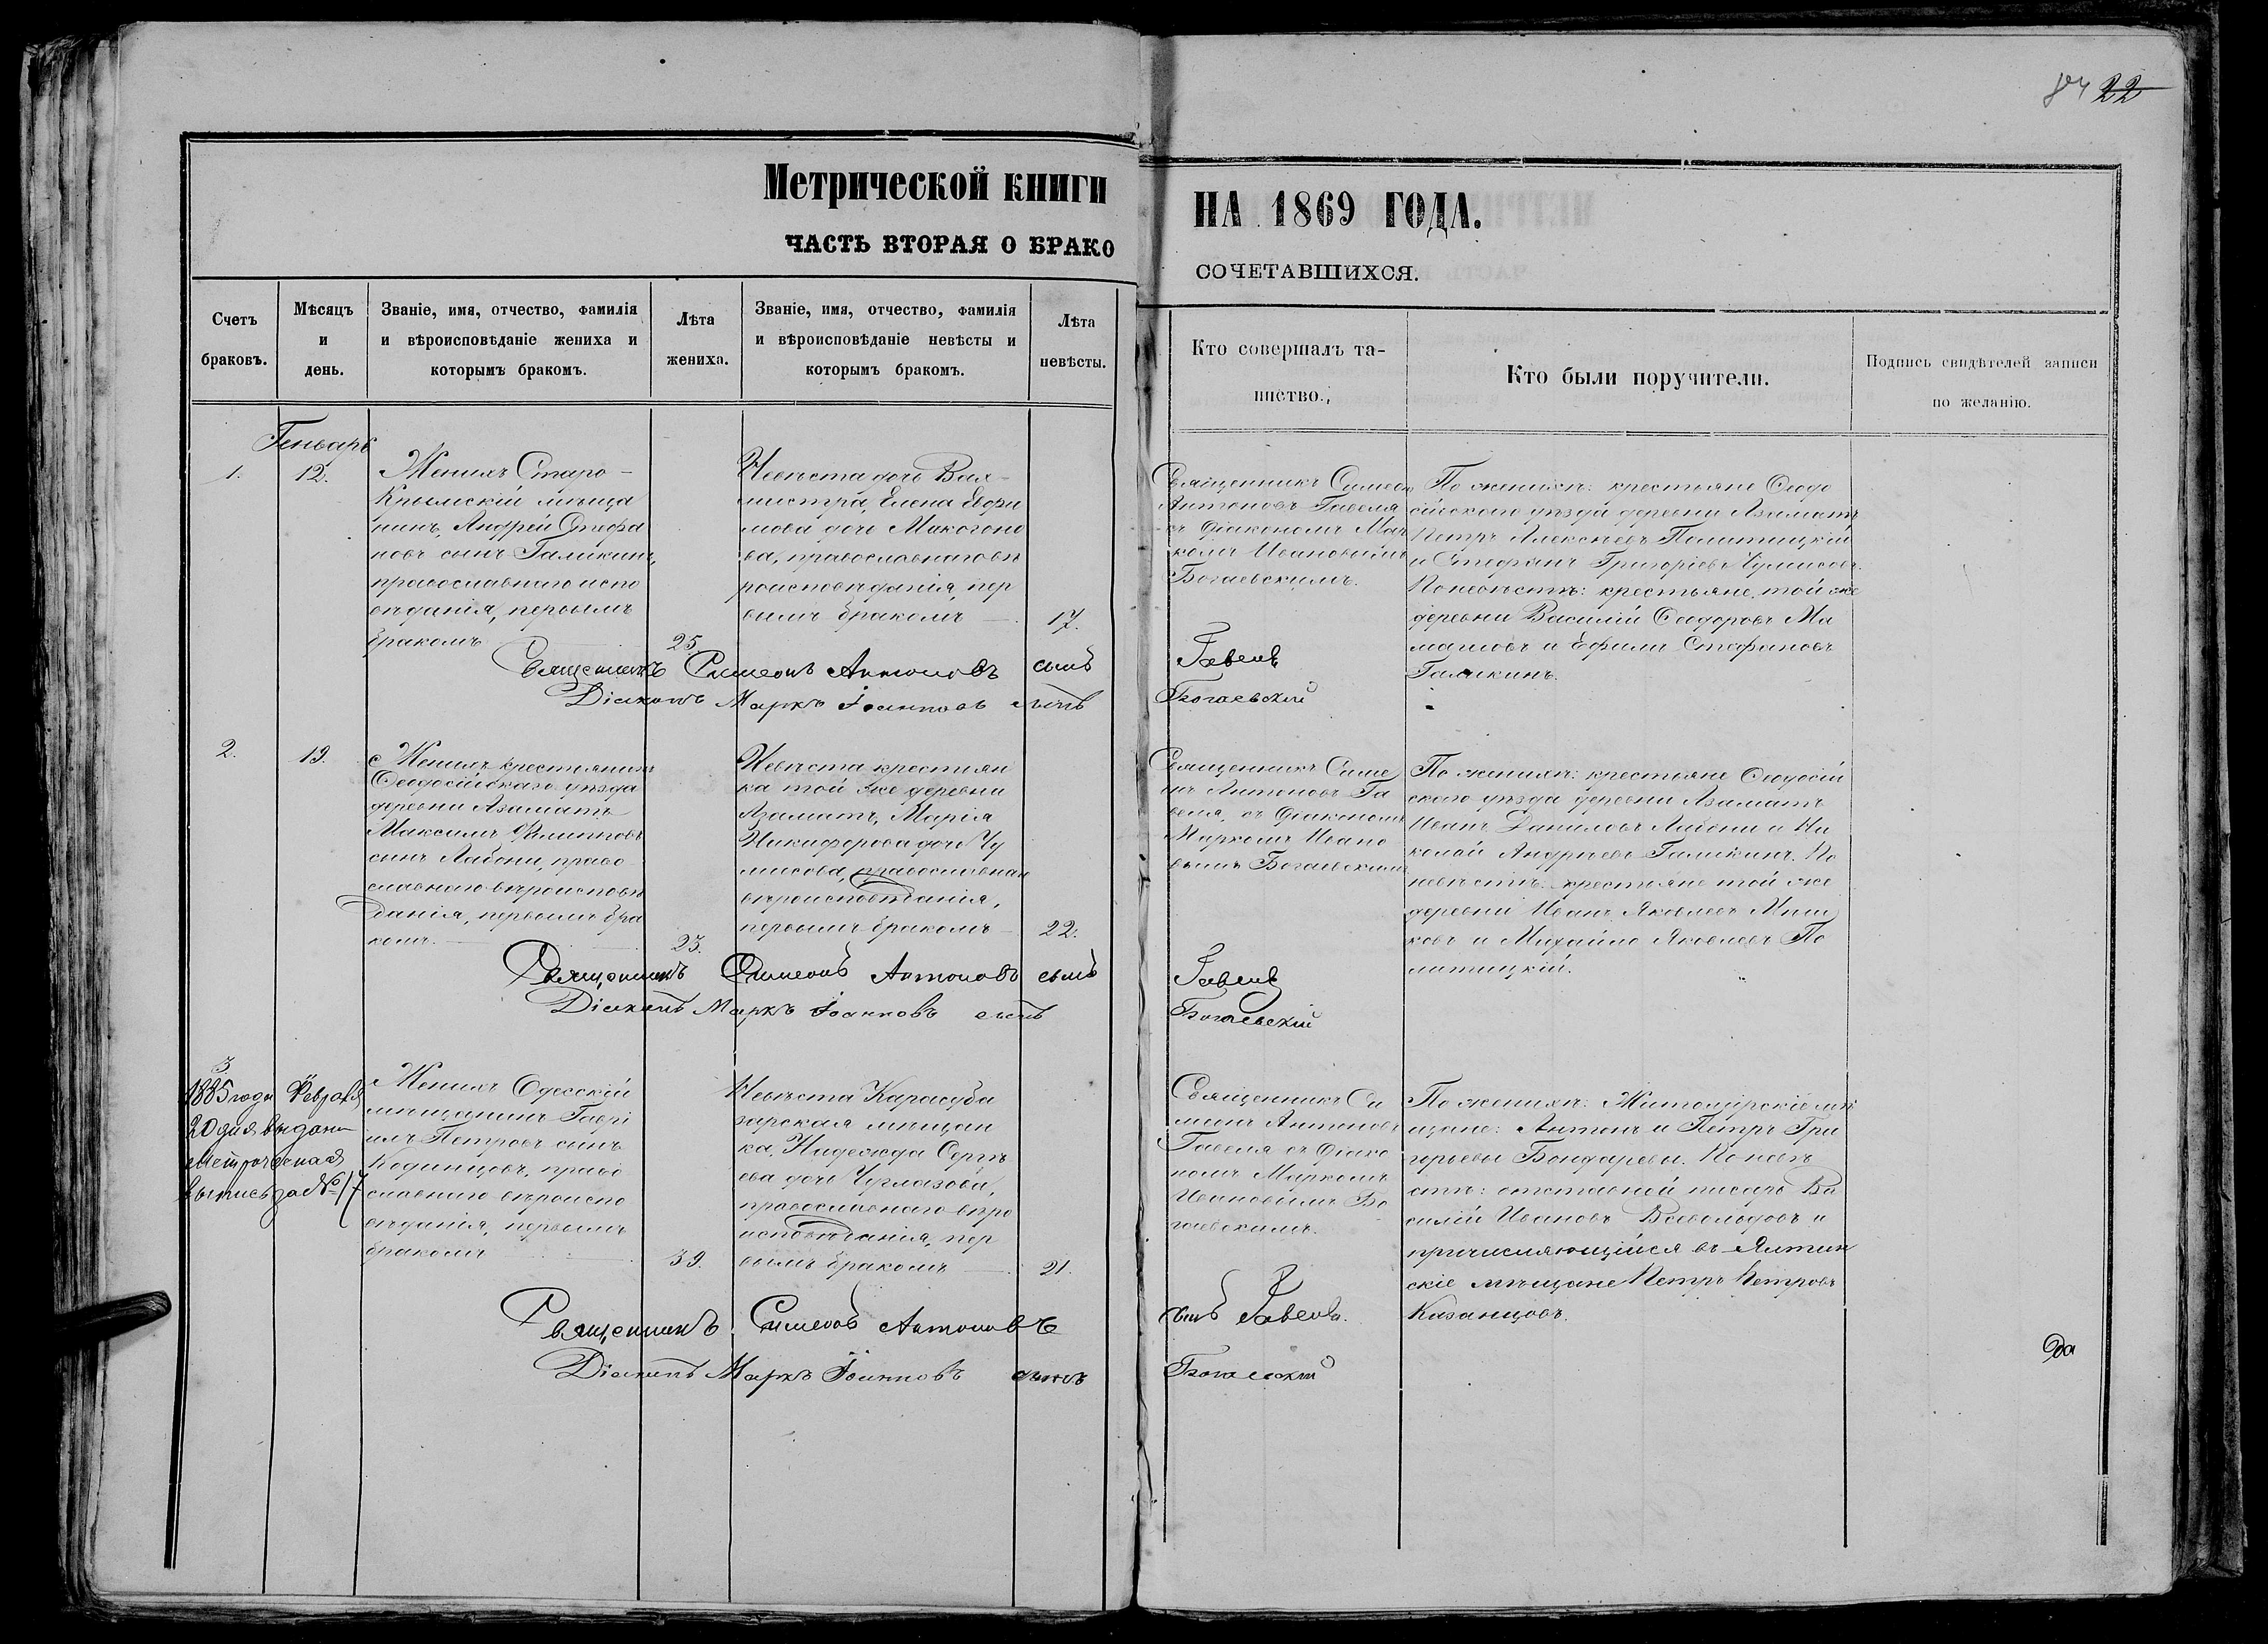 84 22
Метрической книги
НА 1869 ГОДА.
ЧАСТЬ ВТОРАЯ О БРАКО
СОЧЕТАВШИХСЯ.
Счетъ
браковъ.
Мѣсяцъ
и
день.
Званіе, имя, отчество, фамилія
и вѣроисповѣданіе жениха и
которымъ бракомъ.
Лѣта
жениха.
Званіе, имя, отчество, фамилія
и вѣроисповѣданіе невѣсты и
которымъ бракомъ.
Лѣта
невѣсты.
Кто совершалъ та-
инство.
Кто были поручители.
Подпись свидѣтелей записи
по желанію.
Генварь
1.
12.
Женихъ Старо-
Крымскій мѣща
нинъ, Андрей Стефа
новъ сынъ Галикинъ,
православнаго испо
вѣданія, первымъ
бракомъ
25.
Невѣста дочь Вах-
мистра, Елена Ефи
мова дочь Макогоно
ва, православнаго вѣ
роисповѣданія, пер
вымъ бракомъ
17.
Священникъ Симеон
Антоновъ Гавеля
съ Діакономъ Мар
комъ Ивановымъ
Богаевскимъ.
По женихѣ: крестьяне Ѳеодо
сійскаго уѣзда деревни Азаматъ
Петръ Алексѣевъ Политицкій
и Стефанъ Григорьевъ Чумисовъ.
По невѣстѣ: крестьяне той же
деревни Василій Ѳеодоровъ Ма
матовъ и Ефимъ Стефановъ
Галикинъ.
Священникъ Симеонъ Антоновъ сынъ Гавель
Діаконъ Маркъ Іоанновъ сынъ Богаевскій
2.
19.
Женихъ крестьянинъ
Ѳеодосійскаго уѣзда
деревни Азаматъ
Максимъ Филипповъ
сынъ Лабони, право
славнаго вѣроисповѣ
данія, первымъ бра
комъ.
23.
Невѣста крестьян
ка той же деревни
Азаматъ, Марія
Никифорова дочь Чу
мисова, православнаго
вѣроисповѣданія,
первымъ бракомъ
22.
Священникъ Симе
онъ Антоновъ Га
веля, съ Діакономъ
Маркомъ Ивано
вымъ Богаевскимъ
По женихѣ: крестьяне Ѳеодосій
скаго уѣзда деревни Азаматъ
Иванъ Даниловъ Лабони и Ни
колай Андреевъ Галикинъ. По
невѣстѣ: крестьяне той же
деревни Иванъ Яковлевъ Миш
ковъ и Михайло Яковлевъ По
литицкій.
Священникъ Симеонъ Антоновъ сынъ Гавель
Діаконъ Маркъ Іоанновъ сынъ Богаевскій
3.
1885 года Февраля
20 дня выдана
Метрическая
выпись за № 17
Женихъ Одесскій
мѣщанинъ Гаврі
илъ Петровъ сынъ
Кодинцовъ, право
славнаго вѣроиспо
вѣданія, первымъ
бракомъ
39.
Невѣста Карасуба
зарская мѣщан
ка, Надежда Сергѣ
ева дочь Чуглазова,
православнаго вѣро
исповѣданія, пер
вымъ бракомъ
21.
Священникъ Си
меонъ Антоновъ
Гавеля съ Діако
номъ Маркомъ
Ивановымъ Бо
гаевскимъ.
По женихѣ: Житомірскіе мѣ
щане: Антонъ и Петръ Гри
горьевы Бондаревы. По невѣ
стѣ: отставной писарь Ва
силій Ивановъ Всеволодовъ и
причисляющійся въ Ялтин
скіе мѣщане Петръ Петровъ
Казанцовъ.
Священникъ Симеонъ Антоновъ сынъ Гавель.
Діаконъ Маркъ Іоанновъ сынъ Богаевскій